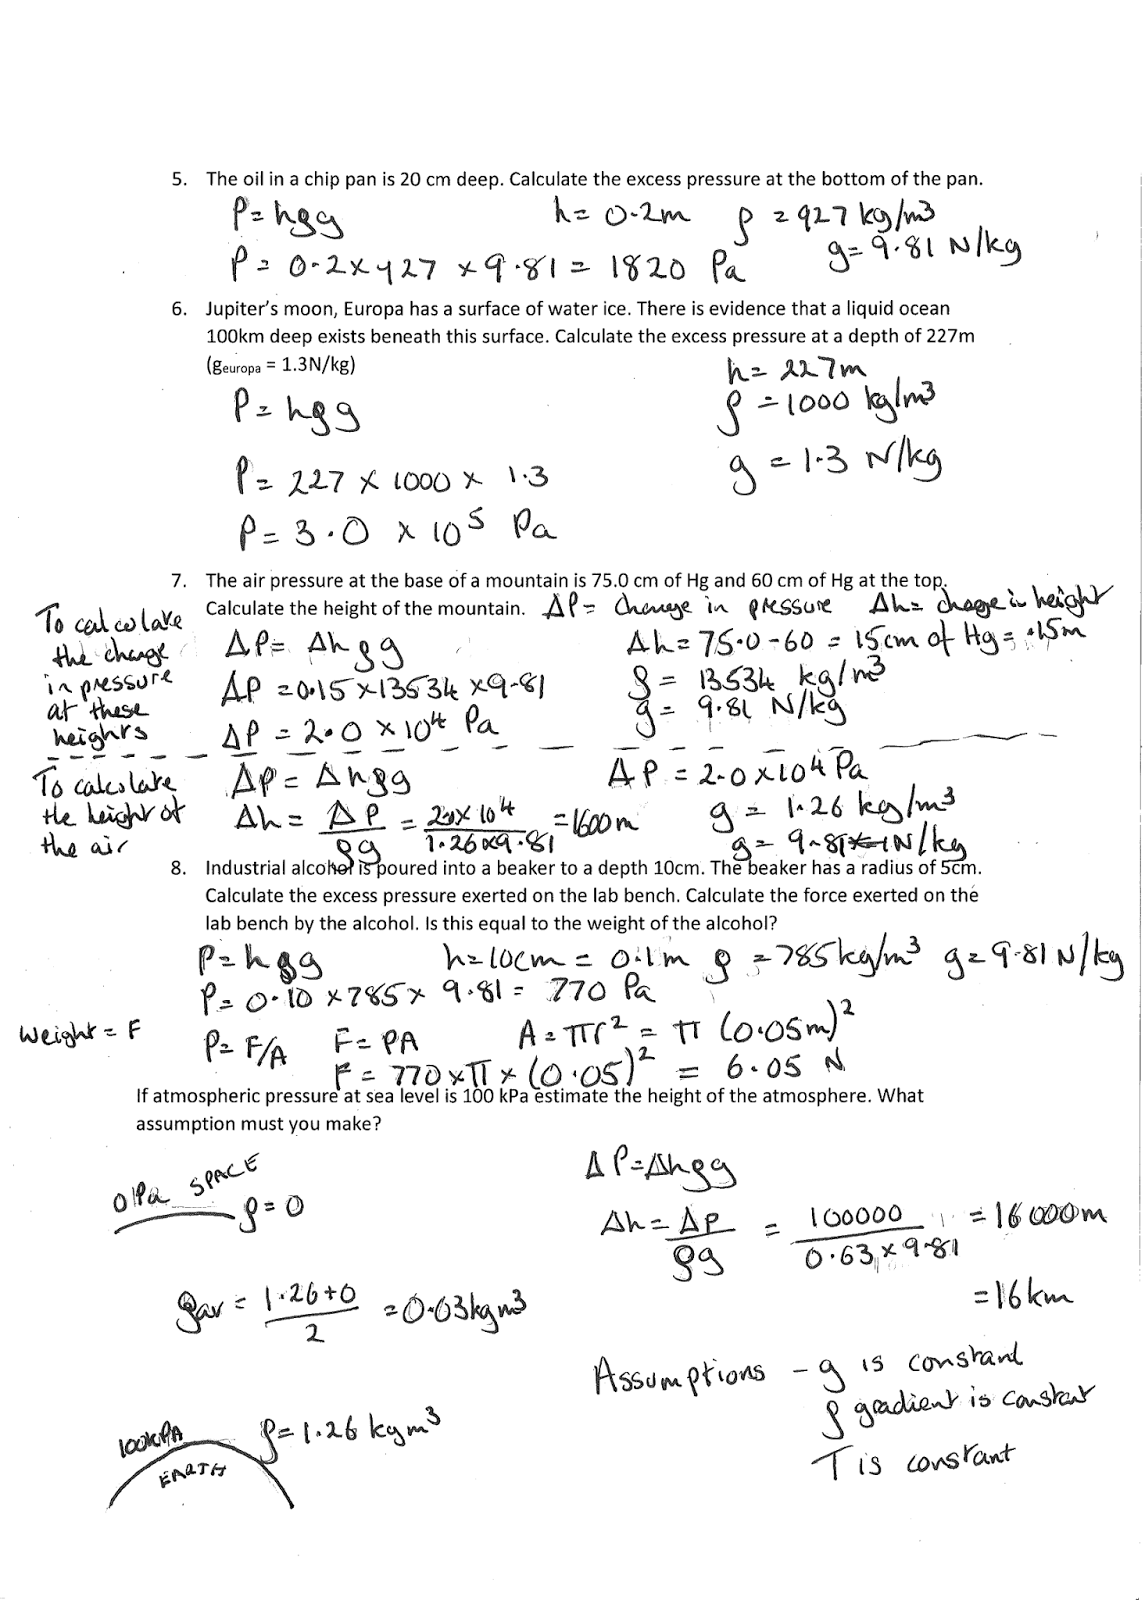 5. The oil in a chip pan is 20 cm deep. Calculate the excess pressure at the bottom of the pan.
P = hρg h = 0.2m ρ = 927 kg/m³
g = 9.81 N/kg
P = 0.2 × 927 × 9.81 = 1820 Pa
6. Jupiter's moon, Europa has a surface of water ice. There is evidence that a liquid ocean
100km deep exists beneath this surface. Calculate the excess pressure at a depth of 227m
(geuropa = 1.3N/kg)
h = 227m
P = hρg ρ = 1000 kg/m³
P = 227 × 1000 × 1.3 g = 1.3 N/kg
P = 3.0 × 10⁵ Pa
7. The air pressure at the base of a mountain is 75.0 cm of Hg and 60 cm of Hg at the top.
Calculate the height of the mountain. ΔP = change in pressure Δh = chage in height
To calculate
the change
in pressure
at these
heights
ΔP = Δhρg Δh = 75.0 - 60 = 15cm of Hg = .15m
ΔP = 0.15 × 13534 × 9.81 ρ = 13534 kg/m³
ΔP = 2.0 × 10⁴ Pa g = 9.81 N/kg
To calculate
the height of
the air
ΔP = Δhρg ΔP = 2.0 × 104 Pa
Δh = ΔP/ρg = 2.0 × 10⁴/1.26 × 9.81 = 1600m ρ = 1.26 kg/m³
g = 9.81 N/kg
8. Industrial alcohol is poured into a beaker to a depth 10cm. The beaker has a radius of 5cm.
Calculate the excess pressure exerted on the lab bench. Calculate the force exerted on the
lab bench by the alcohol. Is this equal to the weight of the alcohol?
P = hρg h = 10cm = 0.1m ρ = 785 kg/m³ g = 9.81 N/kg
P = 0.10 × 785 × 9.81 = 770 Pa
Weight = F P = F/A F = PA A = πr² = π (0.05m)²
F = 770 × π × (0.05)² = 6.05 N
If atmospheric pressure at sea level is 100 kPa estimate the height of the atmosphere. What
assumption must you make?
0 Pa SPACE ΔP = Δhρg
ρ = 0 Δh = ΔP/ρg = 100000/0.63 × 9.81 = 16000m
= 16km
ρav = 1.26+0/2 = 0.63kgm³
Assumptions - g is constant
ρ gradient is constant
T is constant
100kPA ρ = 1.26 kgm³
EARTH